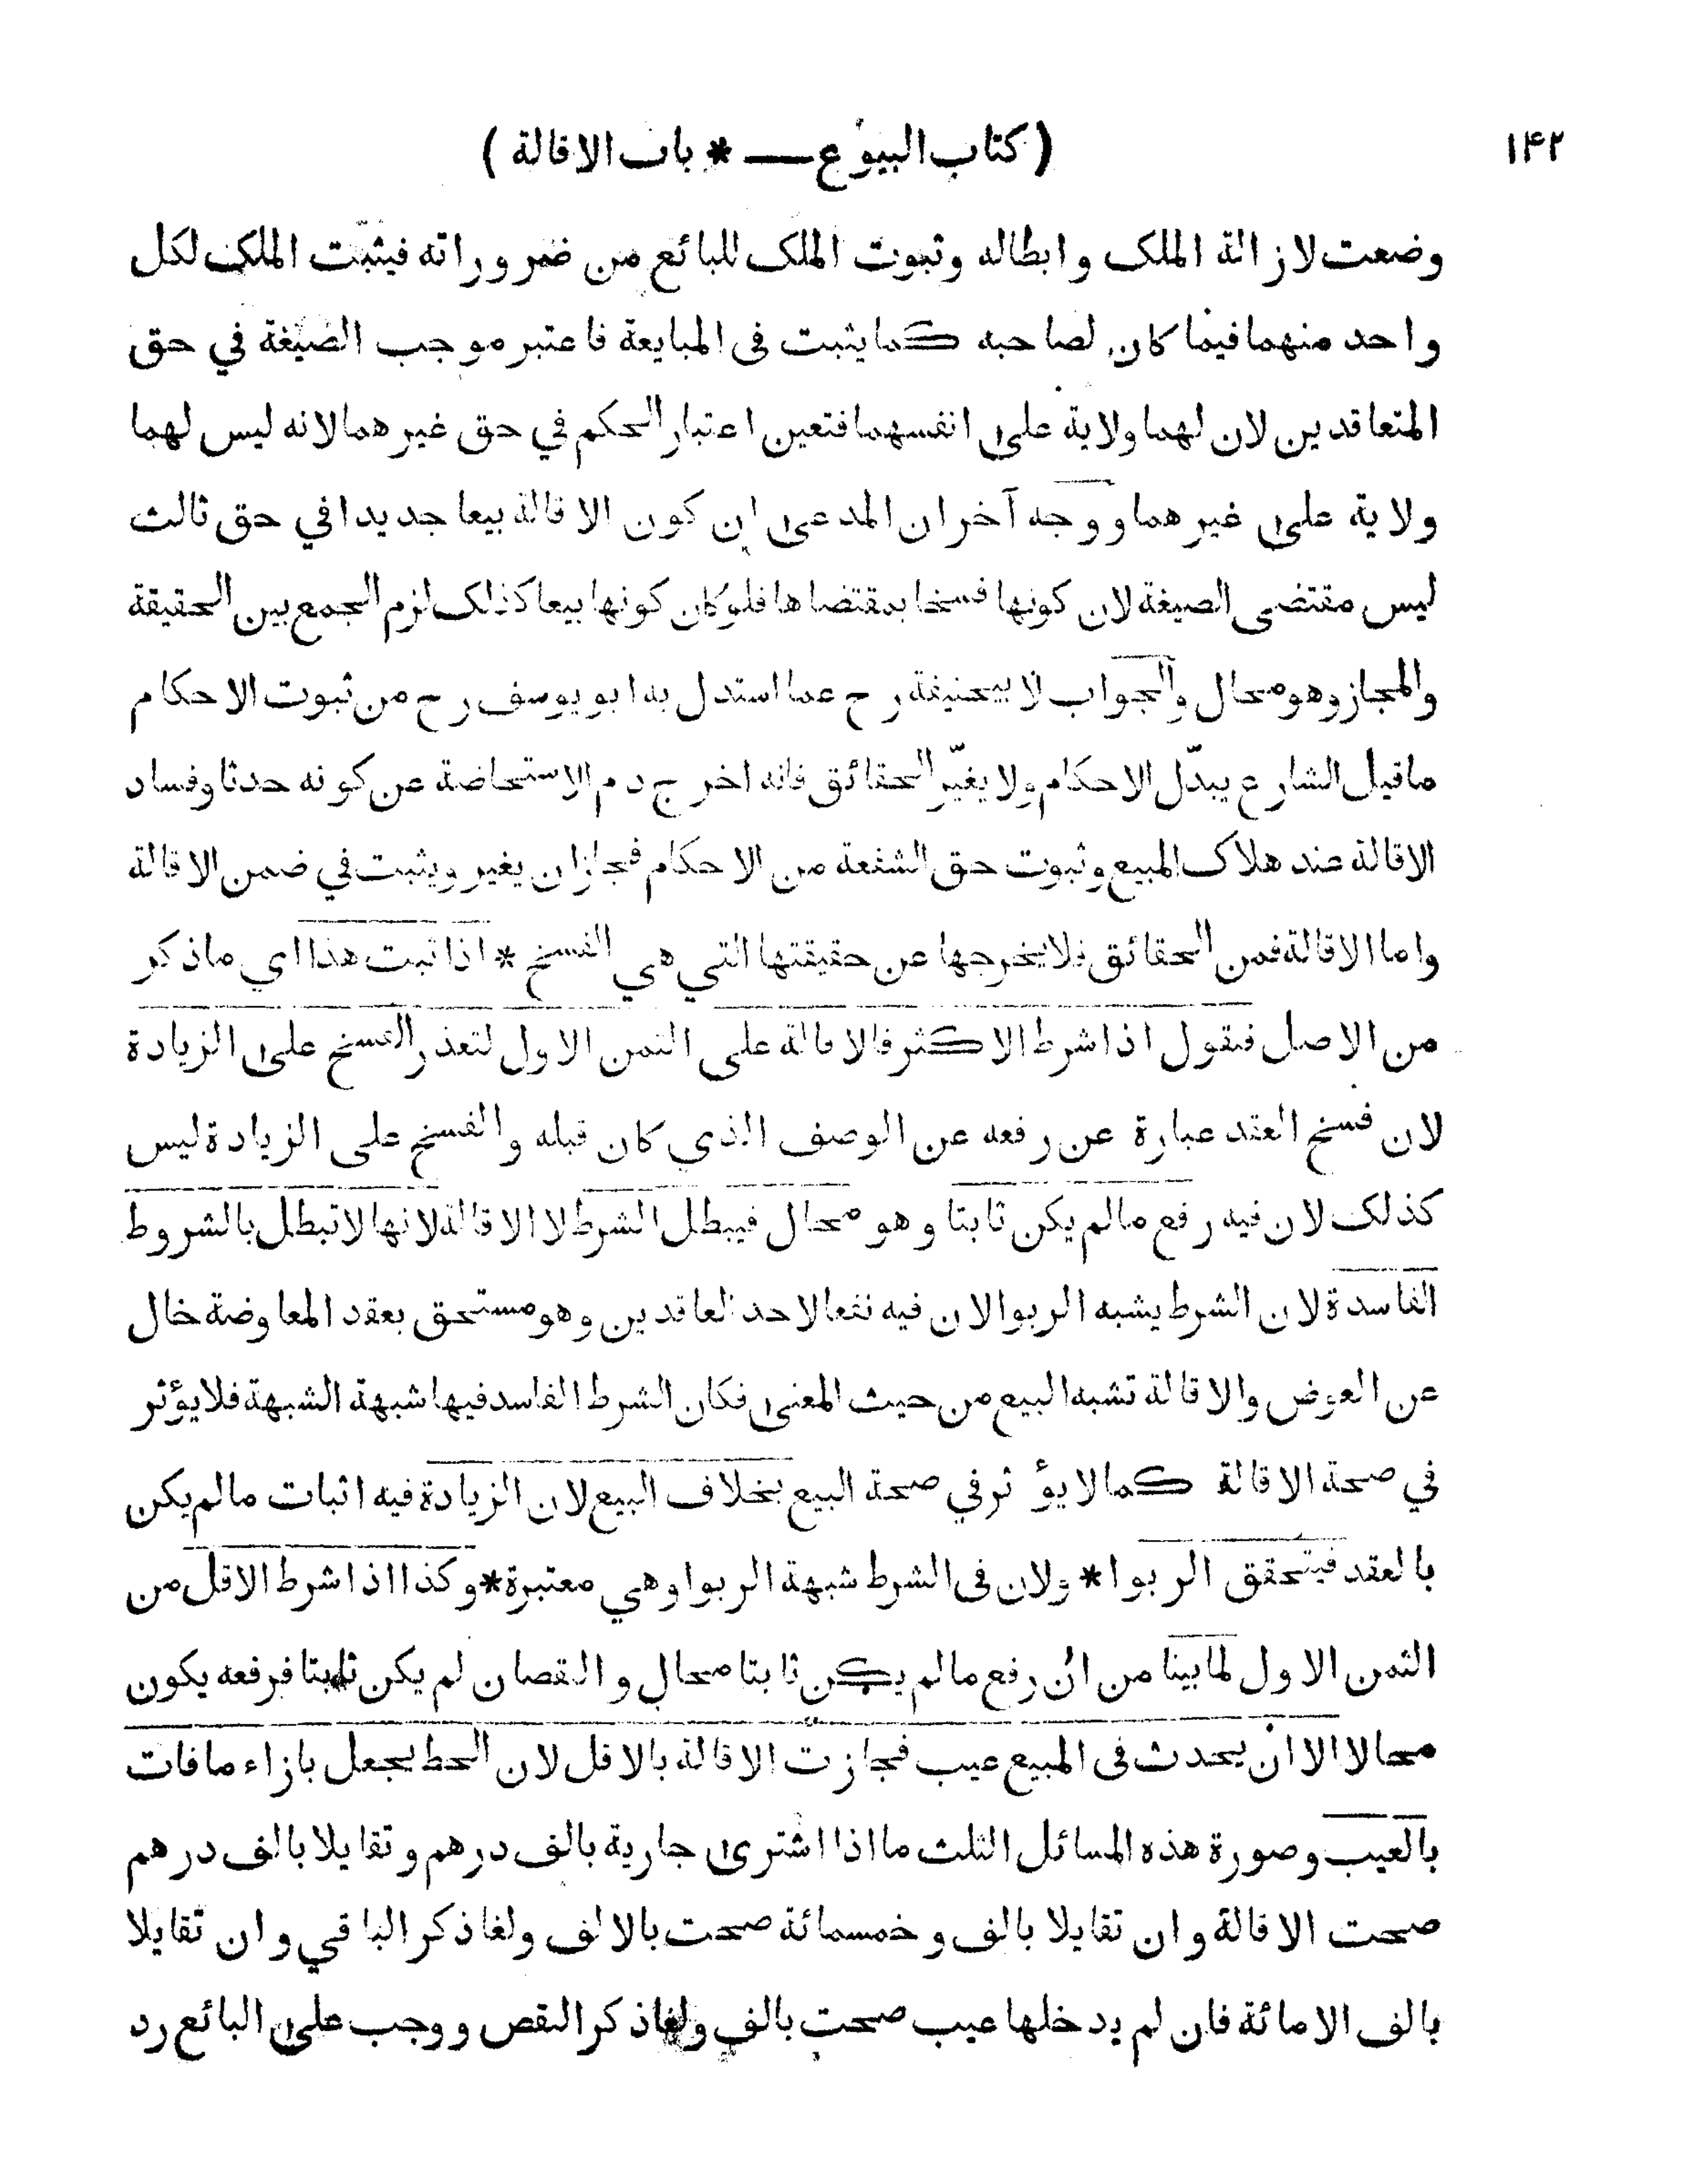 ١۴٢ ( كتاب البيوع — * باب الاقالة )
وضعت لازالة الملك وابطاله وثبوت الملك للبائع من ضروراته فيثبت الملك لكل
واحد منهما فيما كان لصاحبه كما يثبت فى المبايعة فاعتبر موجب الصيغة في حق
المتعاقدين لان لهما ولاية على انفسهما فتعين اعتبار الحكم في حق غيرهما لانه ليس لهما
ولاية على غيرهما ووجه آخر ان المدعى ان كون الاقالة بيعا جديدا في حق ثالث
ليس مقتضى الصيغة لان كونها فسخا بمقتضاها فلو كان كونها بيعا كذلك لزم الجمع بين الحقيقة
والمجاز وهو محال والجواب لابيحنيفة رح عما استدل به ابو يوسف رح من ثبوت الاحكام
ما قيل الشارع يبدّل الاحكام ولا يغيّر الحقائق فانه اخرج دم الاستحاضة عن كونه حدثا وفساد
الاقالة عند هلاك المبيع وثبوت حق الشفعة من الاحكام فجاز ان يغير ويثبت في ضمن الاقالة
واما الاقالة فمن الحقائق فلا يخرجها عن حقيقتها التي هي الفسخ * اذا ثبت هذا اي ما ذكر
من الاصل فنقول اذا شرط الاكثر فالاقالة على الثمن الاول لتعذر الفسخ على الزيادة
لان فسخ العقد عبارة عن رفعه عن الوصف الذي كان قبله والفسخ على الزيادة ليس
كذلك لان فيه رفع ما لم يكن ثابتا وهو محال فيبطل الشرط لا الاقالة لانها لا تبطل بالشروط
الفاسدة لان الشرط يشبه الربوا لان فيه نفعا لاحد العاقدين وهو مستحق بعقد المعاوضة خال
عن العوض والاقالة تشبه البيع من حيث المعنى فكان الشرط الفاسد فيها شبهة الشبهة فلا يؤثر
في صحة الاقالة كما لا يؤثر في صحة البيع بخلاف البيع لان الزيادة فيه اثبات ما لم يكن
بالعقد فيتحقق الربوا * ولان فى الشرط شبهة الربوا وهي معتبرة * وكذا اذا شرط الاقل من
الثمن الاول لما بينا من ان رفع ما لم يكن ثابتا محال والنقصان لم يكن ثابتا فرفعه يكون
محالا الا ان يحدث فى المبيع عيب فجازت الاقالة بالاقل لان الحط يجعل بازاء ما فات
بالعيب وصورة هذه المسائل الثلث ما اذا اشترى جارية بالف درهم وتقايلا بالف درهم
صحت الاقالة وان تقايلا بالف وخمسمائة صحت بالالف ولغا ذكر الباقي وان تقايلا
بالف الا مائة فان لم يدخلها عيب صحت بالف ولغا ذكر النقص ووجب على البائع رد